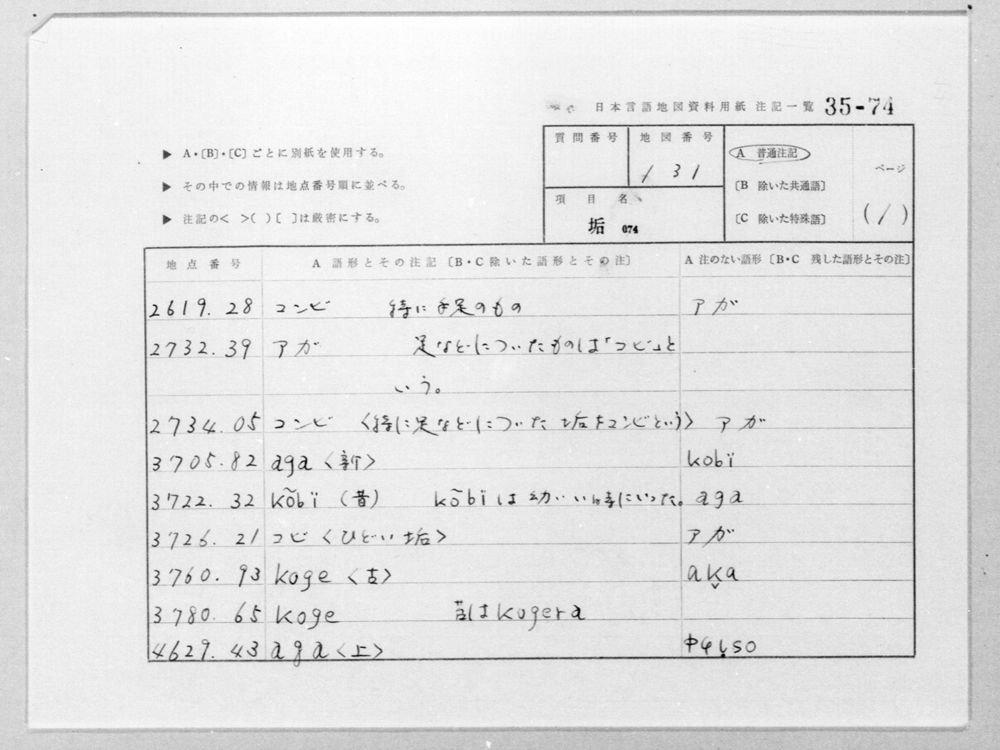 日本言語地図資料用紙 注記一覧 35-74
▶ A・〔B〕・〔C〕ごとに別紙を使用する。
▶ その中での情報は地点番号順に並べる。
▶ 注記の< >( )[ ]は厳密にする。
質問番号 地図番号 131
項目名 垢 074
A 普通注記
〔B 除いた共通語〕
〔C 除いた特殊語〕
ページ (1)
地点番号 A 語形とその注記〔B・C除いた語形とその注〕 A 注のない語形〔B・C 残した語形とその注〕
2619.28 コンビ 特に手足のもの アガ
2732.39 アガ 足などについたものは「コビ」と
いう。
2734.05 コンビ 〈特に足などについた垢をコンビという〉 アガ
3705.82 aga〈新〉 kobï
3722.32 kõbï (昔) kõbïは幼い時にいった。 aga
3726.21 コビ〈ひどい垢〉 アガ
3760.93 koge〈古〉 ak̬a
3780.65 koge 昔はkogera
4629.43 aga〈上〉